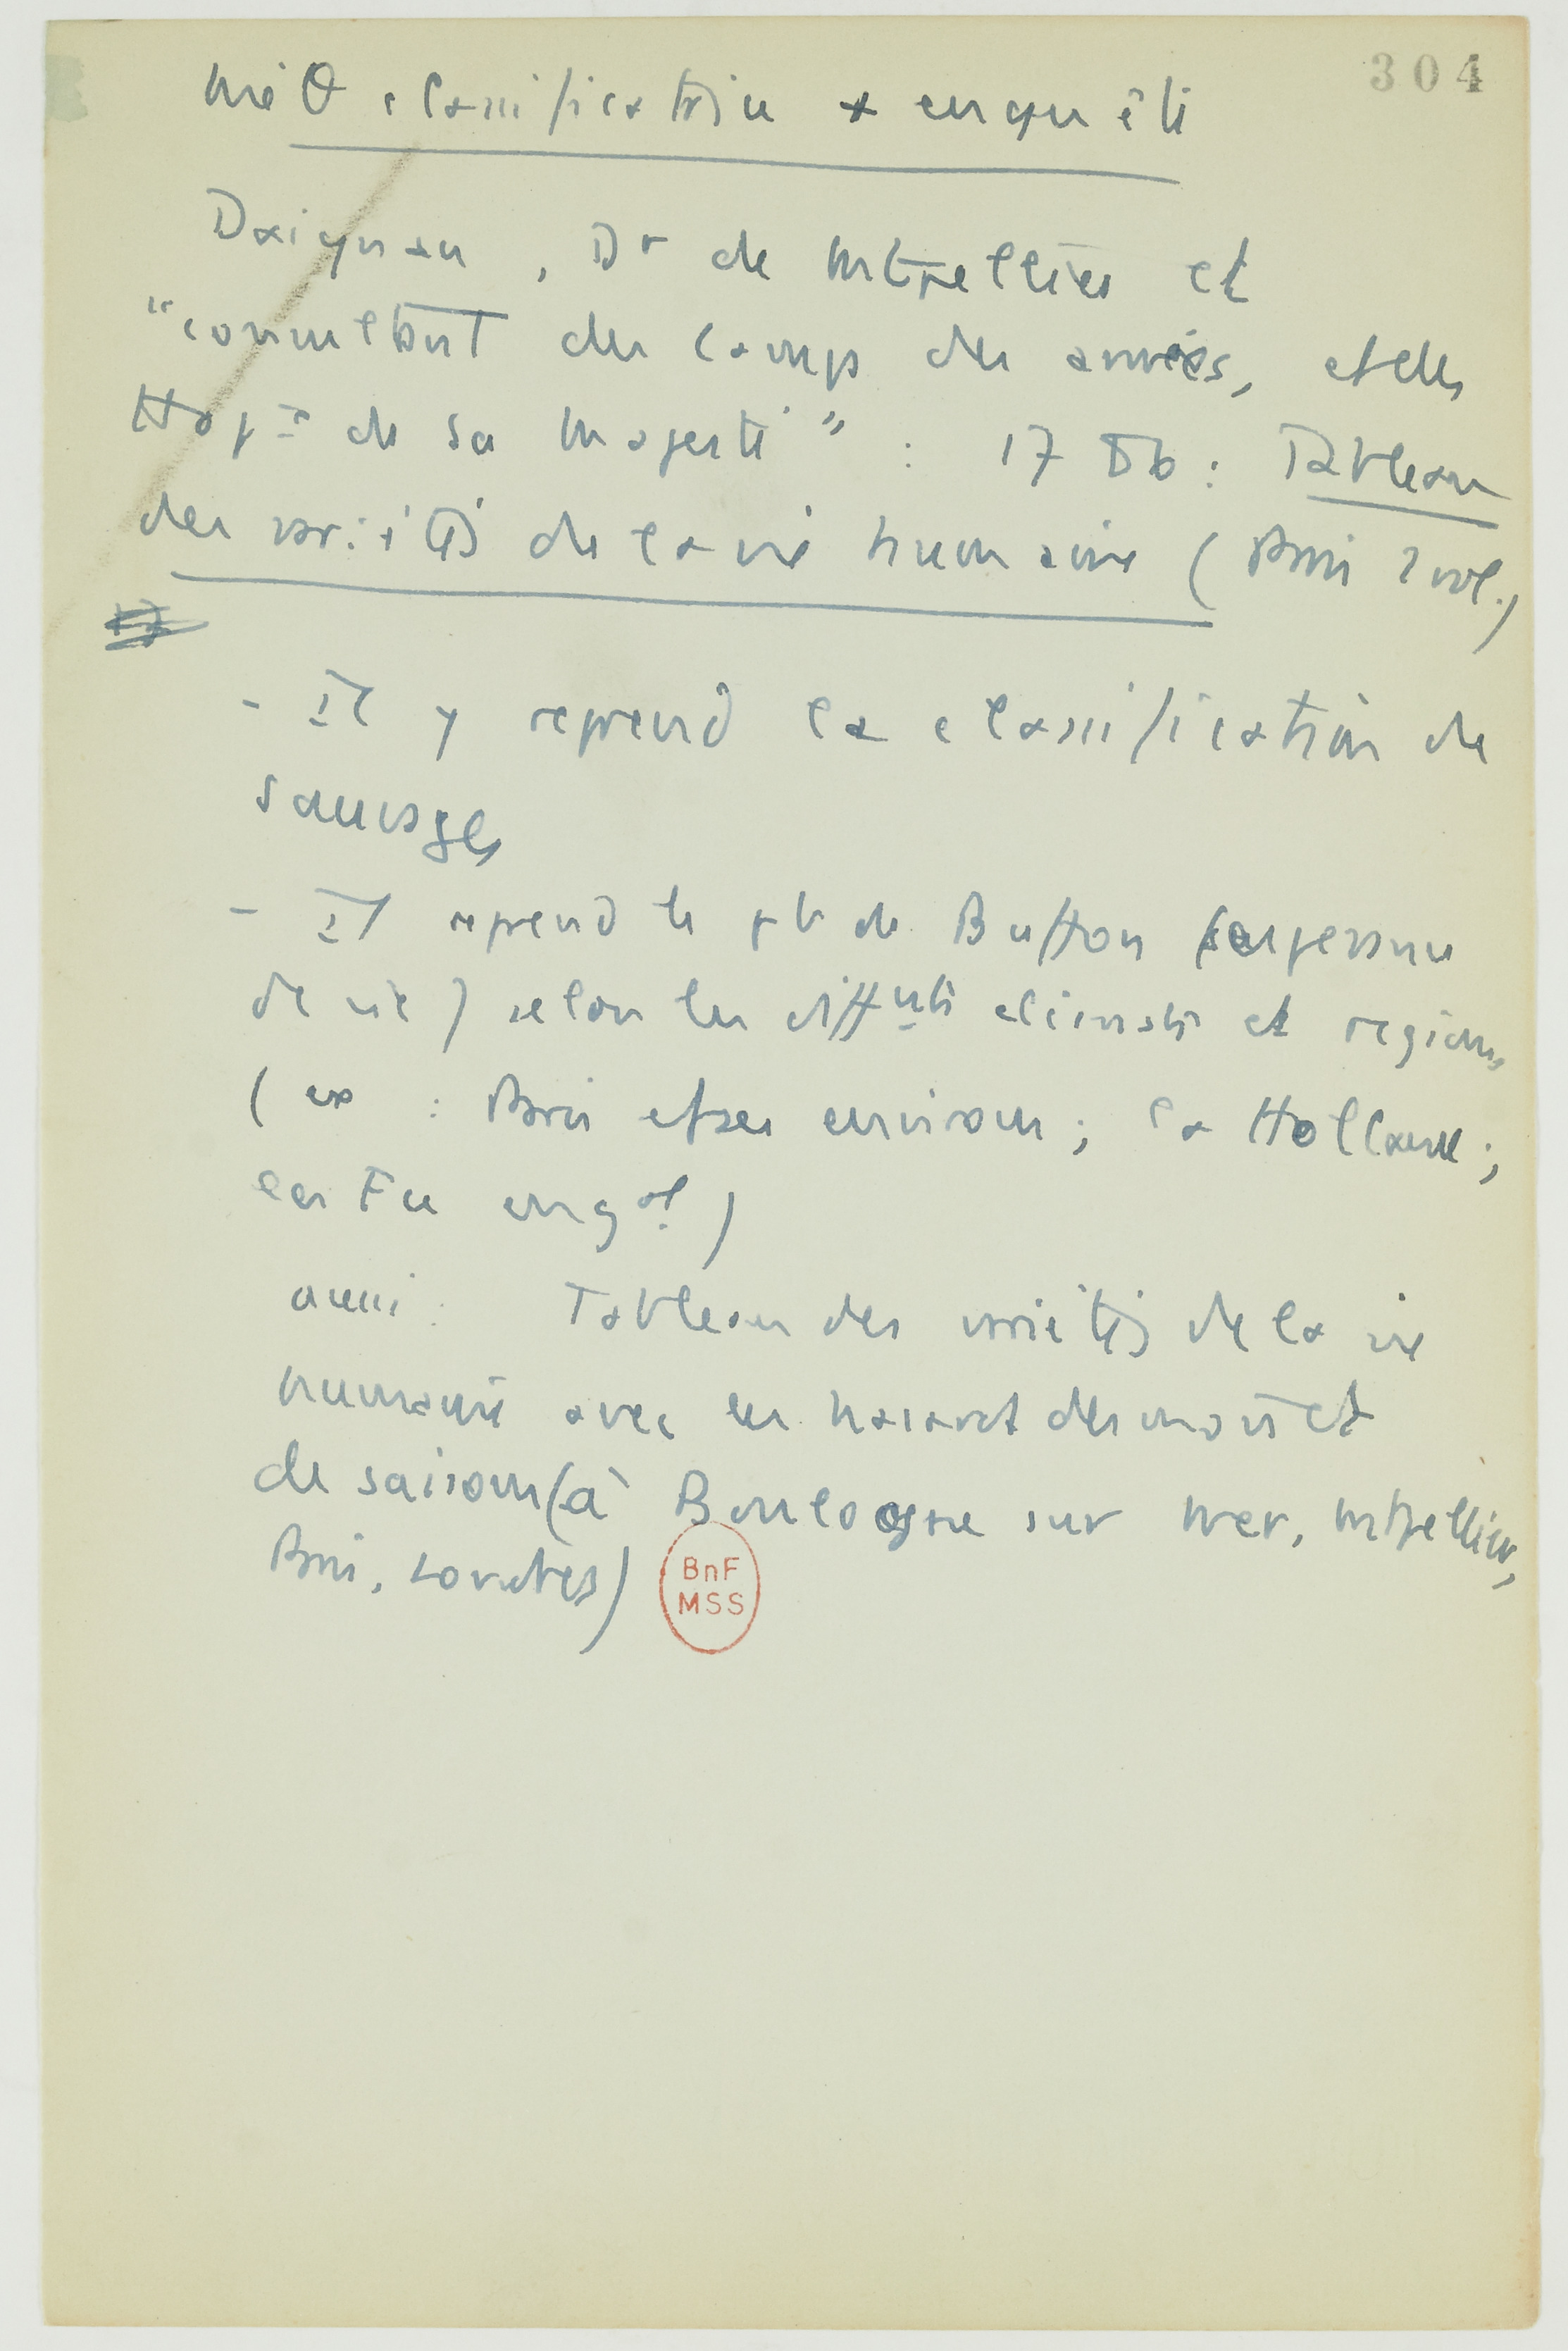 304
Méθ classificatrice & enquête
Daignan, Dr de Mtpellier et
"consultant des camps des armées, et des
Hôpx de sa Majesté" : 1786 : Tableau
des variétés de la vie humaine (Paris 2 vol.)
- Il y reprend la classification de
Sauvages
- Il reprend le pb de Buffon (espérance
de vie) selon les difftts climats et régions
(ex : Paris et ses environs ; la Hollande ;
en Fce en gal)
aussi : Tableau des variétés de la vie
humaine avec les des mois et
de saisons (à Boulogne sur mer, Mtpellier,
Paris, Londres)
BnF
MSS